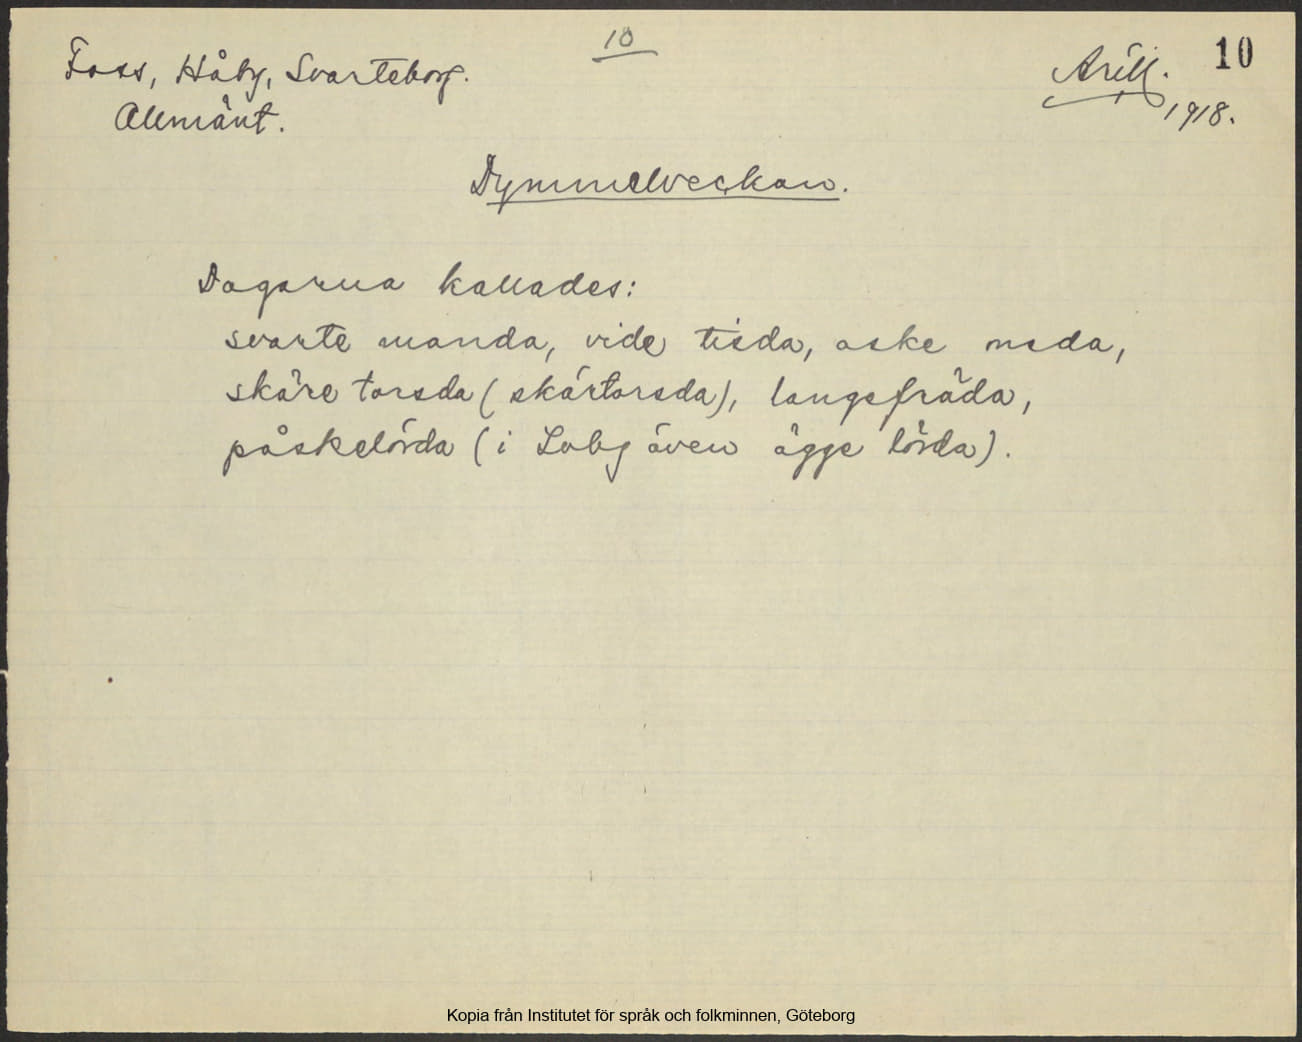 10
Foss, Håby, Svarteborg.
Arill. 10
Allmänt.
1918.
Dymmelveckan.
Dagarna kallades:
svarte manda, vide tisda, aske onsda,
skäre torsda (skärtorsda), langefräda,
påskelörda (i Åby även ägge lörda).
Kopia från Institutet för språk och folkminnen, Göteborg